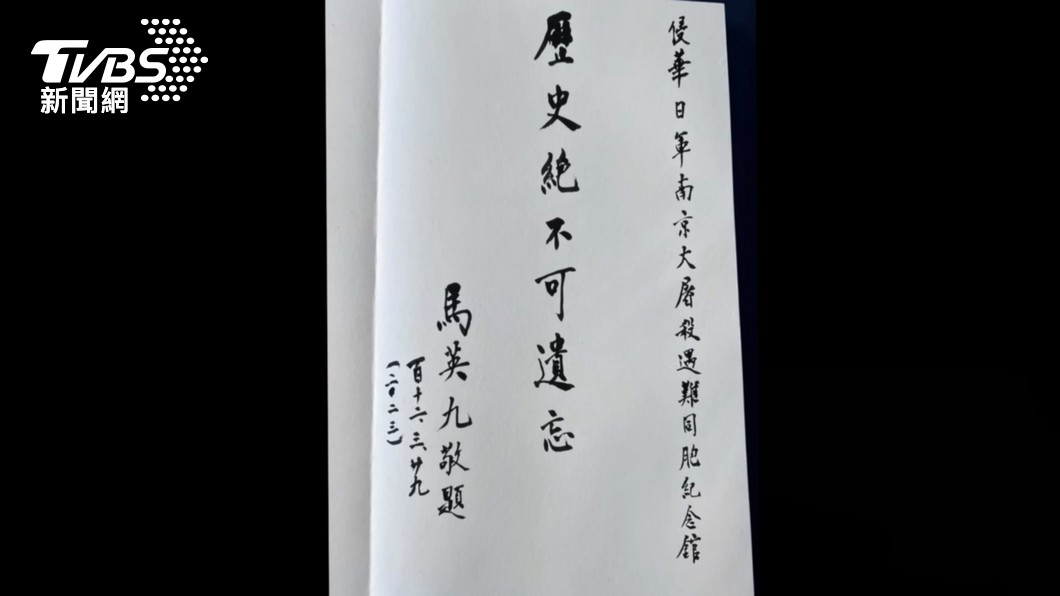 TVBS
新聞網
侵華日軍南京大屠殺遇難同胞紀念館
歷史絕不可遺忘
馬英九敬題
百十二、三、廿九
(二〇二三)